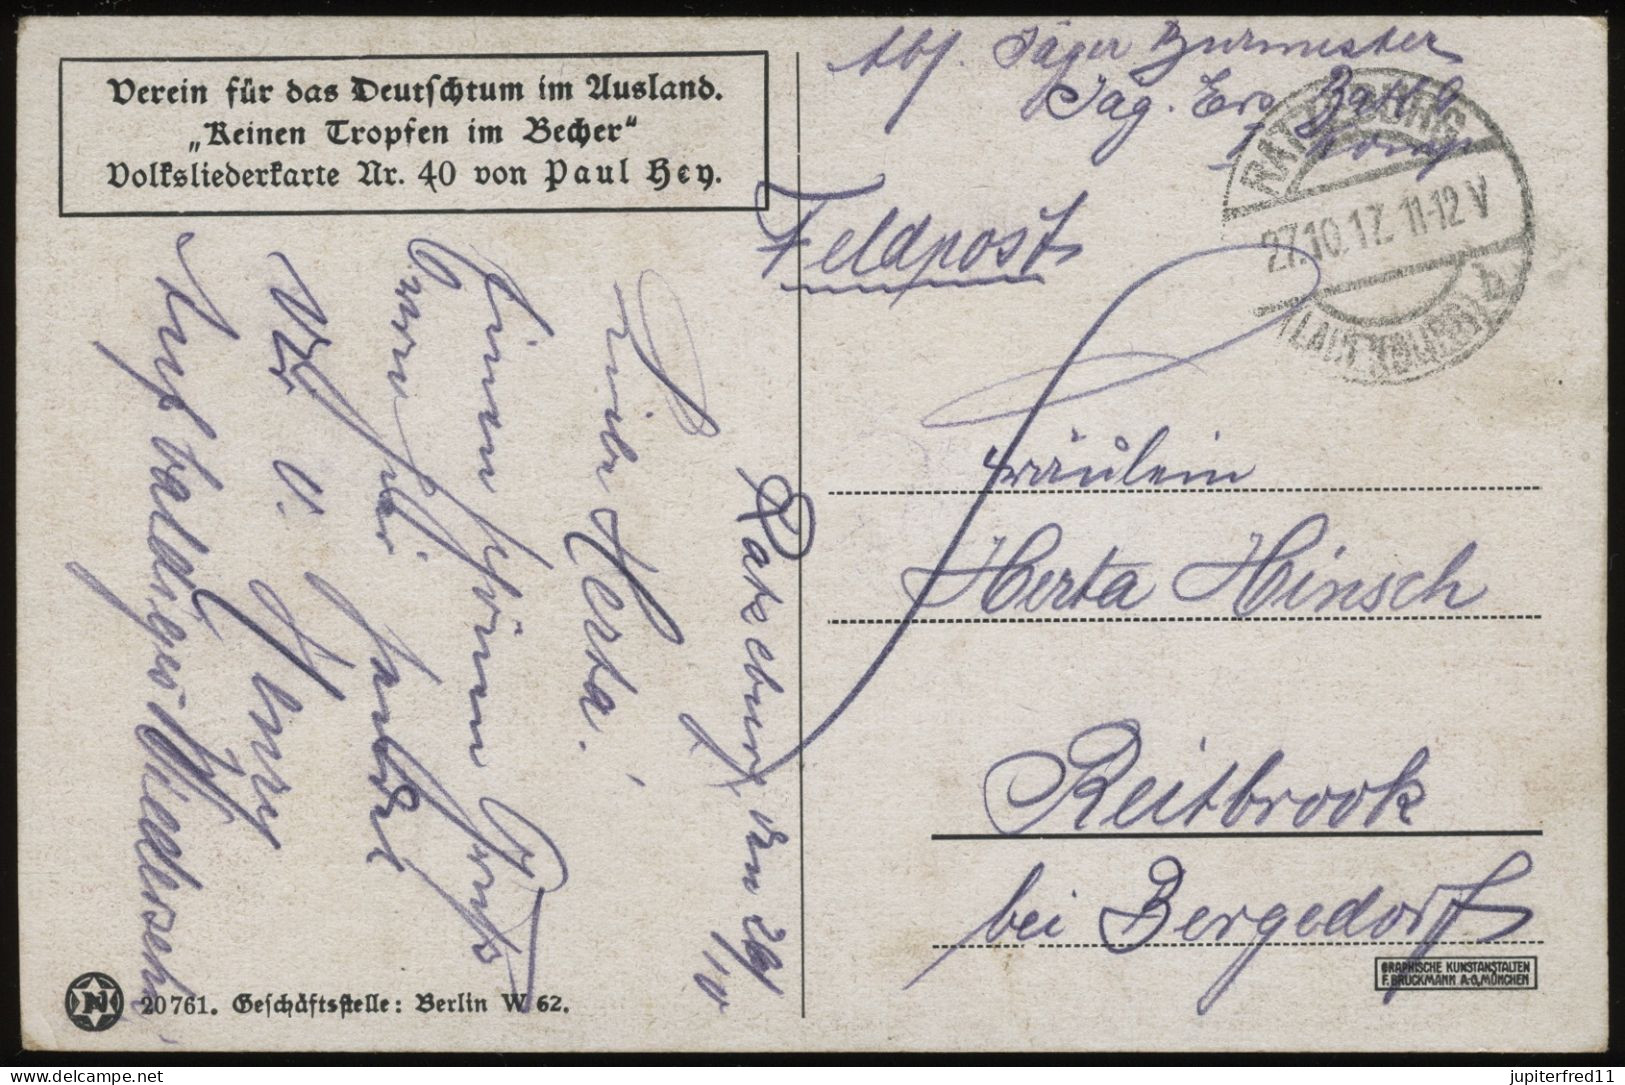 Verein für das Deutschtum im Ausland.
„Keinen Tropfen im Becher“
Volksliederkarte Nr. 40 von Paul Hey.
Abs. Jäger Burmester
Jäg. Ers. Batl. 9
Komp.
Feldpost
RATZEBURG
27.10.17. 11-12 V
b
(LAUENBURG)
Fräulein
Herta Hinsch
Reitbrook
bei Bergedorf
Ratzeburg, den 26/10
Liebe Herta!
Einen schönen Gruß
sendet
Henry
Auf baldiges Wiedersehn!
20761. Geschäftsstelle: Berlin W 62.
GRAPHISCHE KUNSTANSTALTEN
F. BRUCKMANN A.-G., MÜNCHEN
delcampe.net
jupiterfred11